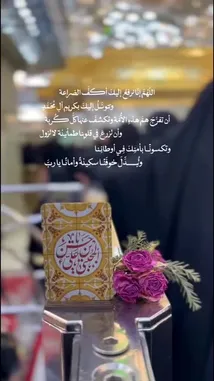 اللهُمَّ إنّا نرفعُ إليكَ أكُفَّ الضراعة
ونتوسّلُ إليكَ بكريمِ آلِ مُحمّدٍ
أن تُفرّجَ همَّ هذهِ الأُمة وتكشفَ عنها كلَّ كُربة
وأن تزرعَ في قلوبنا طمأنينة لا تزول
وتكسونا بأمنِكَ في أوطاننا
وتُبدّلَ خوفَنا سكينةً وأمانًا يا ربّ